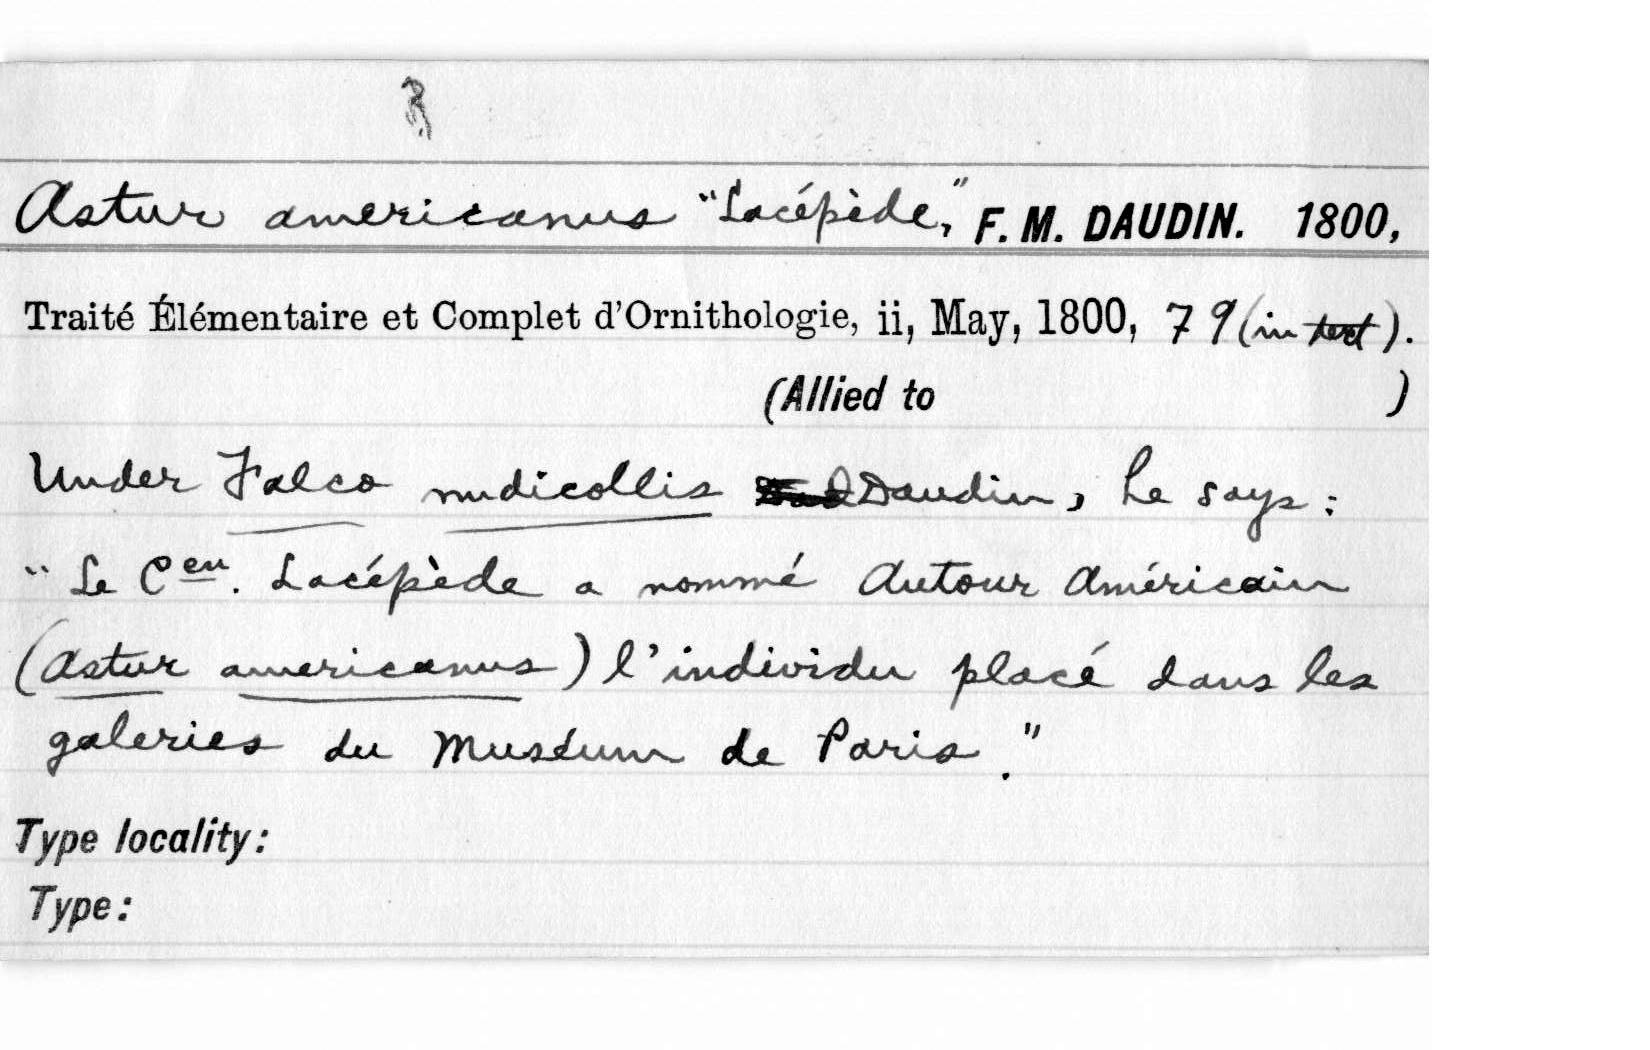 Astur americanus "Lacépède," F. M. DAUDIN. 1800,
Traité Élémentaire et Complet d'Ornithologie, ii, May, 1800, 79 (in text).
(Allied to )
Under Falco nudicollis Daudin, he says:
"Le Cen. Lacépède a nommé Autour Américain
(Astur americanus) l'individu placé dans les
galeries du Muséum de Paris."
Type locality:
Type: